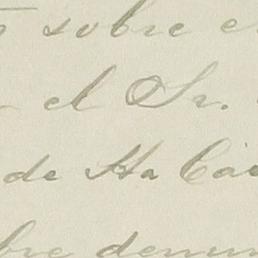 sobre e
el Sr.
de Ha Cá
bre denun